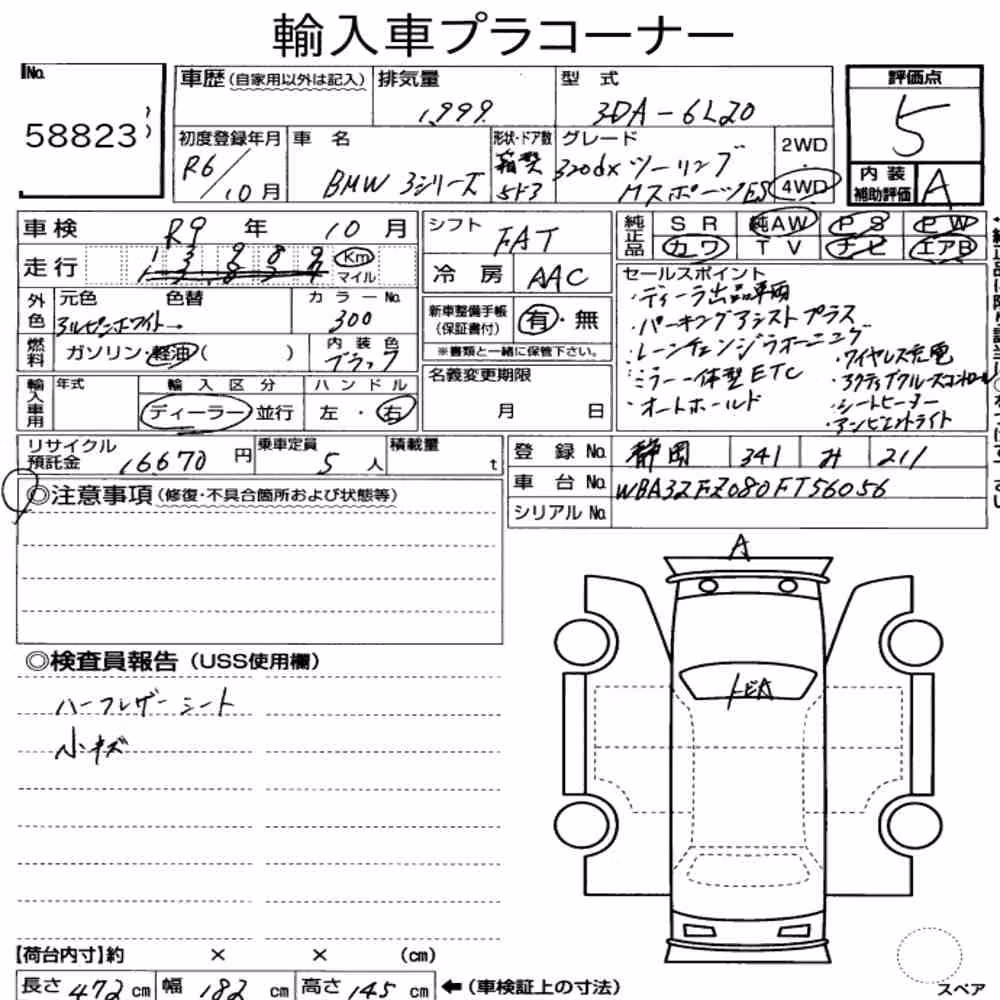 輸入車プラコーナー
No. 58823
車歴(自家用以外は記入) 排気量 1,999 型式 3DA-6L20
評価点 5
内装補助評価 A
初度登録年月 R6/10月 車名 BMW 3シリーズ 形状・ドア数 箱型 5ドア グレード 320dx ツーリング Mスポーツ 2WD・4WD
車検 R9年 10月
シフト FAT
純正品 SR 純AW PS PW
カワ TV ナビ エアB
走行 Km マイル
冷房 AAC
外色 元色 色替 アルピンホワイト→ カラーNo. 300
新車整備手帳(保証書付) 有・無
※書類と一緒に保管下さい。
燃料 ガソリン・軽油( ) 内装色 ブラック
セールスポイント
・ディーラ出品車両
・パーキングアシストプラス
・レーンチェンジウォーニング
・ミラー一体型ETC
・オートホールド
・ワイヤレス充電
・アクティブクルーズコントロール
・シートヒーター
・アンビエントライト
輸入車用 年式 輸入区分 ディーラー 並行 ハンドル 左・右
名義変更期限 月 日
リサイクル預託金 16670円 乗車定員 5人 積載量 t
登録No. 静岡 341 み 211
車台No. WBA32FZ080FT56056
シリアルNo.
◎注意事項(修復・不具合箇所および状態等)
A
◎検査員報告(USS使用欄)
ハーフレザーシート
小キズ
【荷台内寸】約 × × (cm)
長さ 472cm 幅 182cm 高さ 145cm ←(車検証上の寸法)
スペア